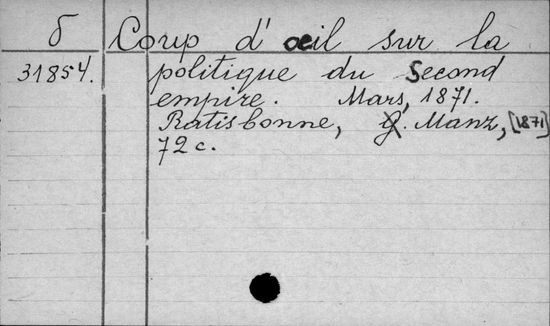 б Coup d'œil sur la
31854. politique du Second
empire. Mars, 1871.
Ratisbonne, G. Manz, [1871]
72 c.